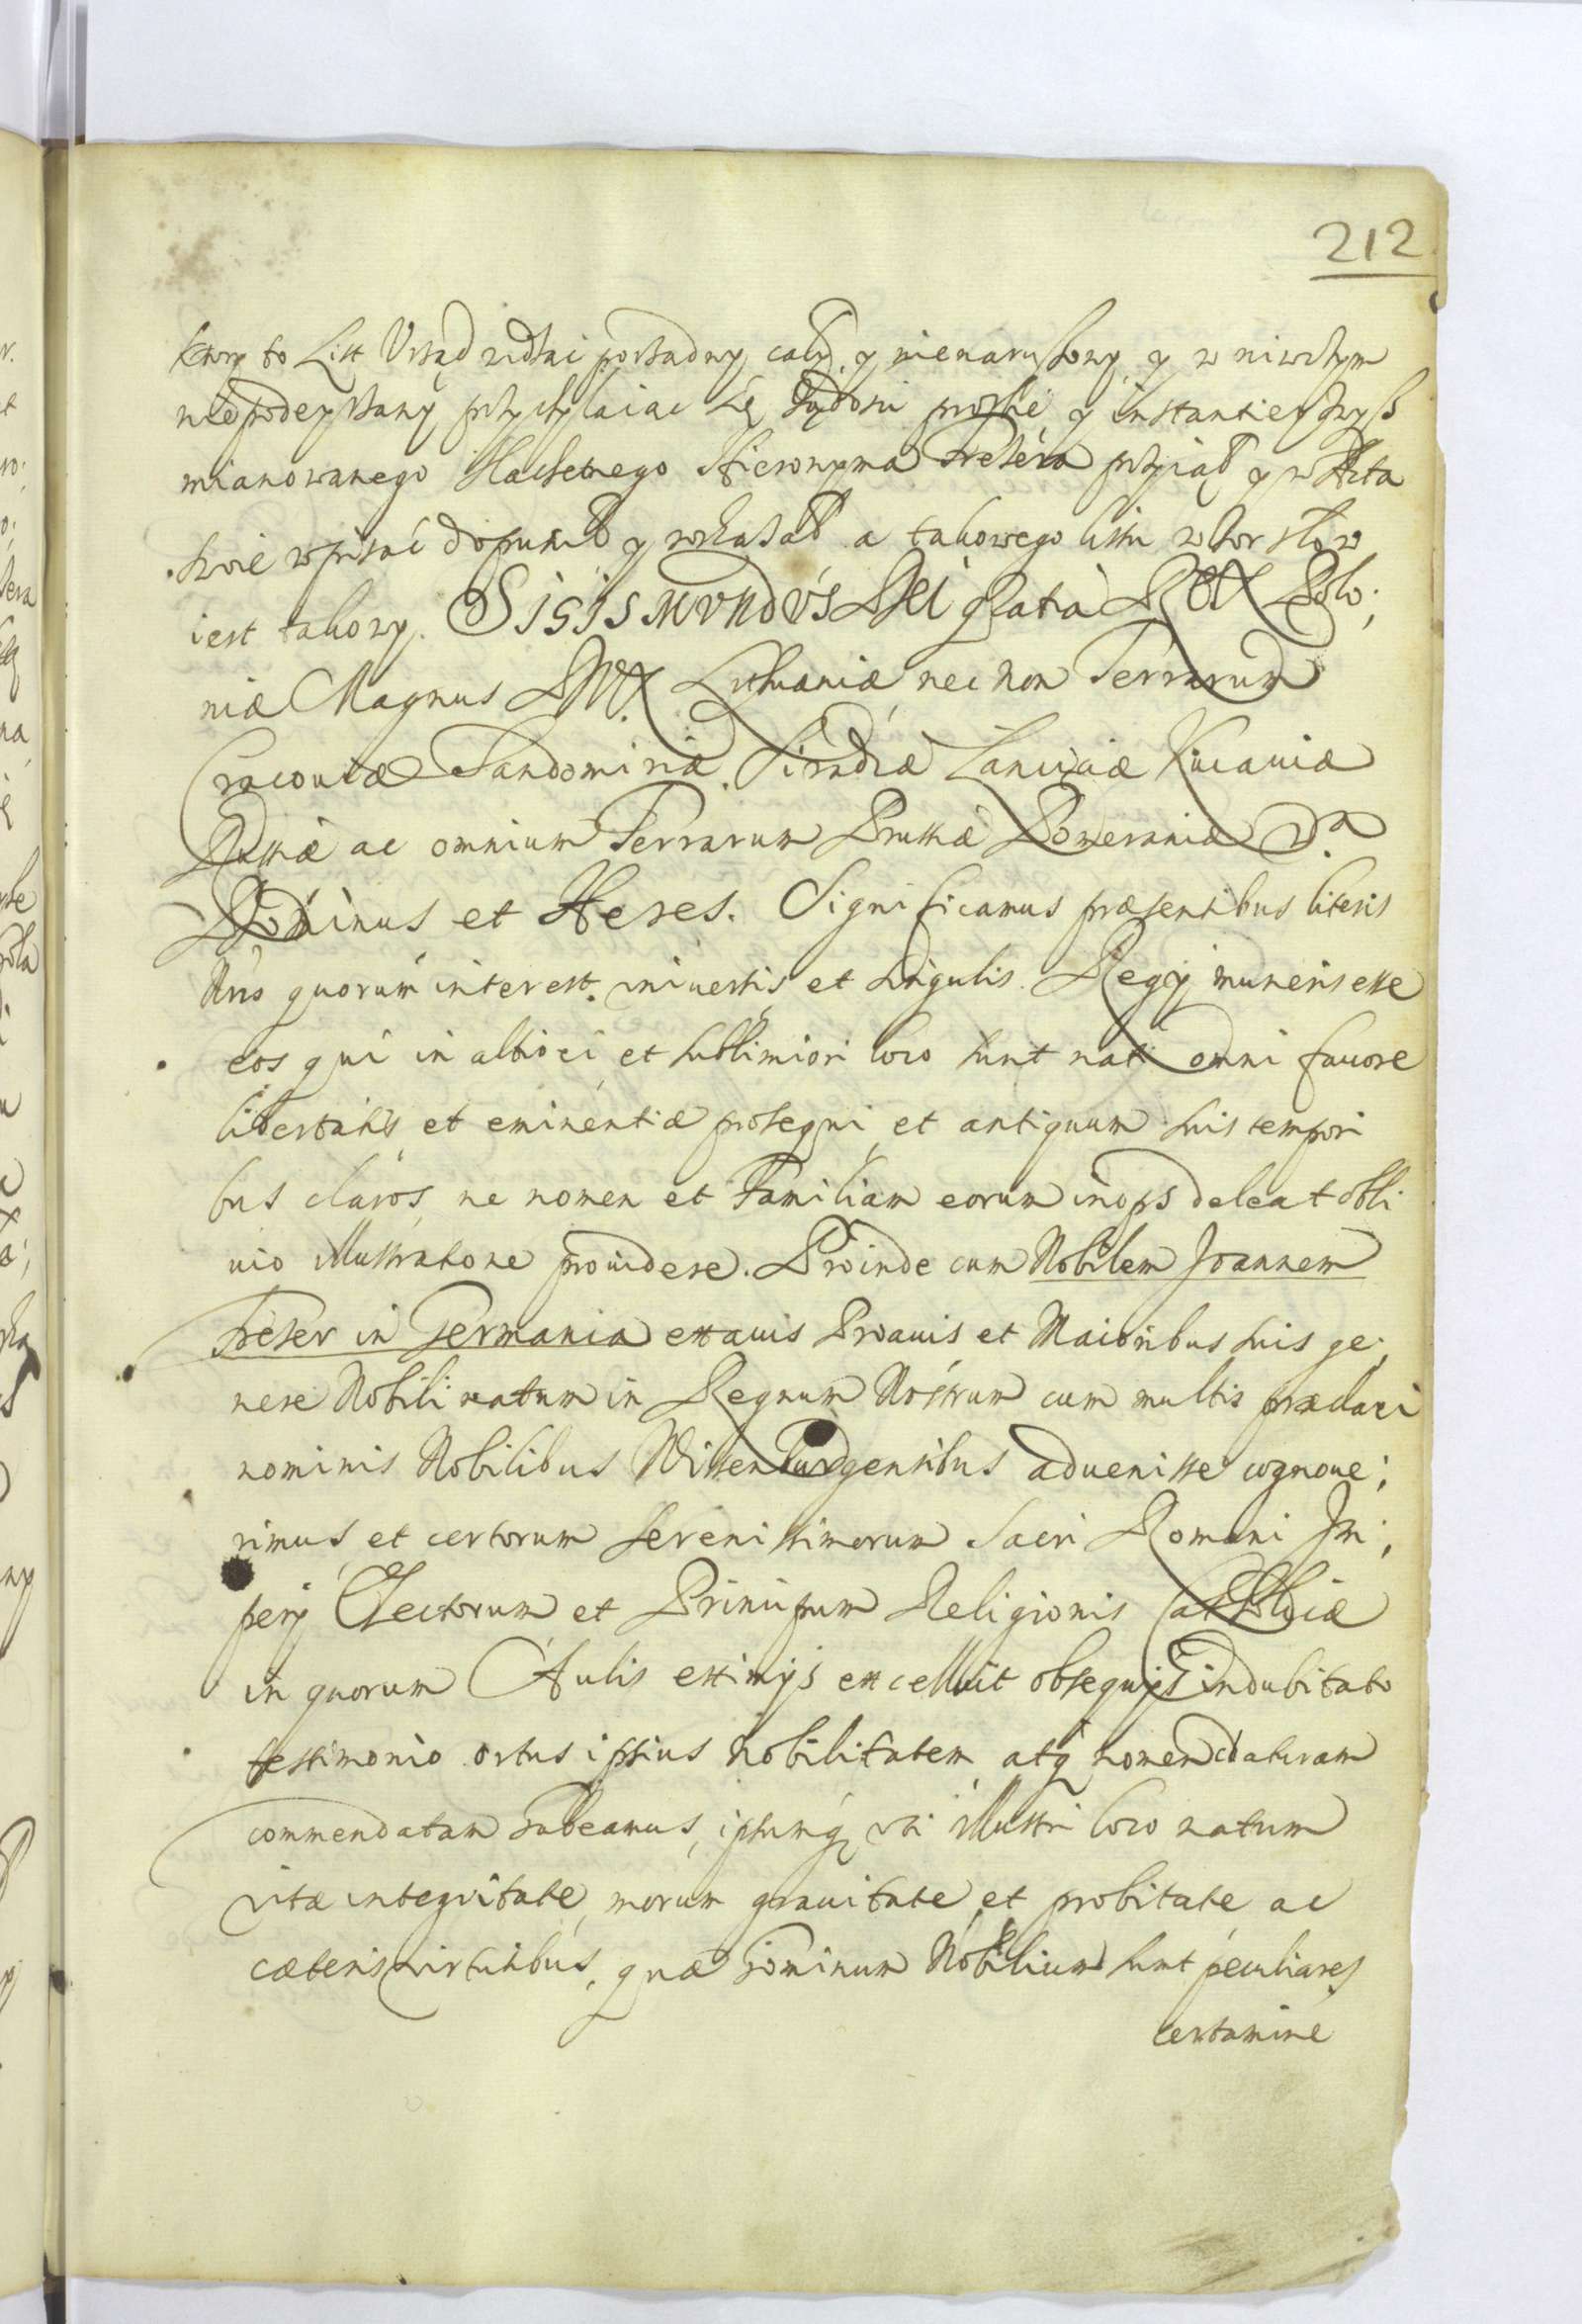 212
ktory to List Vrząd widząc porządny, cały y nienaruszony, y w niwczym
niepodeyrzany przychylaiąc się, żądości prożbie y instantiey zwysz
mianowanego Slachetnego Hieronyma Tretera przyiął y w Akta
swoie wpisać dopuścił y wskazał a takowego listu wtor słow
iest takowy. Sigismvndvs Dei gratia Rex Polo;
niæ Magnus Dux Lithuaniæ, nec non Terrarum
Cracouiæ Sandomiriæ Siradiæ Lanciciæ Kuiauiæ
Russiæ ac omnium Terrarum Prussiæ Pomeraniæ
Dominus et Heres. Significamus præsentibus literis
Nris quorum interest. vniuersis et singulis. Regij muneris esse
eos qui in altiori et sublimiori loco sunt nati omni fauore
libertatis et eminentiæ prosequi, et antiquum suis tempori
bus claros, ne nomen et Familiam eorum inops deleat obli
uio illustratione prouidere. Proinde cum Nobilem Joannem
Treter in Germania ex auis Proauis et Maioribus suis ge;
nere Nobili natum in Regnum Nostrum cum multis præclari
nominis Nobilibus Wittenburgensibus aduenisse cognoue;
rimus, et certorum Serenissimorum Sacri Romani Im;
perij Electorum et Principum Religionis Catholicæ
in quorum Aulis eximijs excelluit obsequijs indubitato
testimonio ortus ipsius nobilitatem atq nomenclaturam
commendatam habeamus, ipsumq vti illustri loco natum
vitæ integritate, morum grauitate et probitate ac
cæteris virtutibus, quæ hominum Nobilium sunt peculiares
certamine